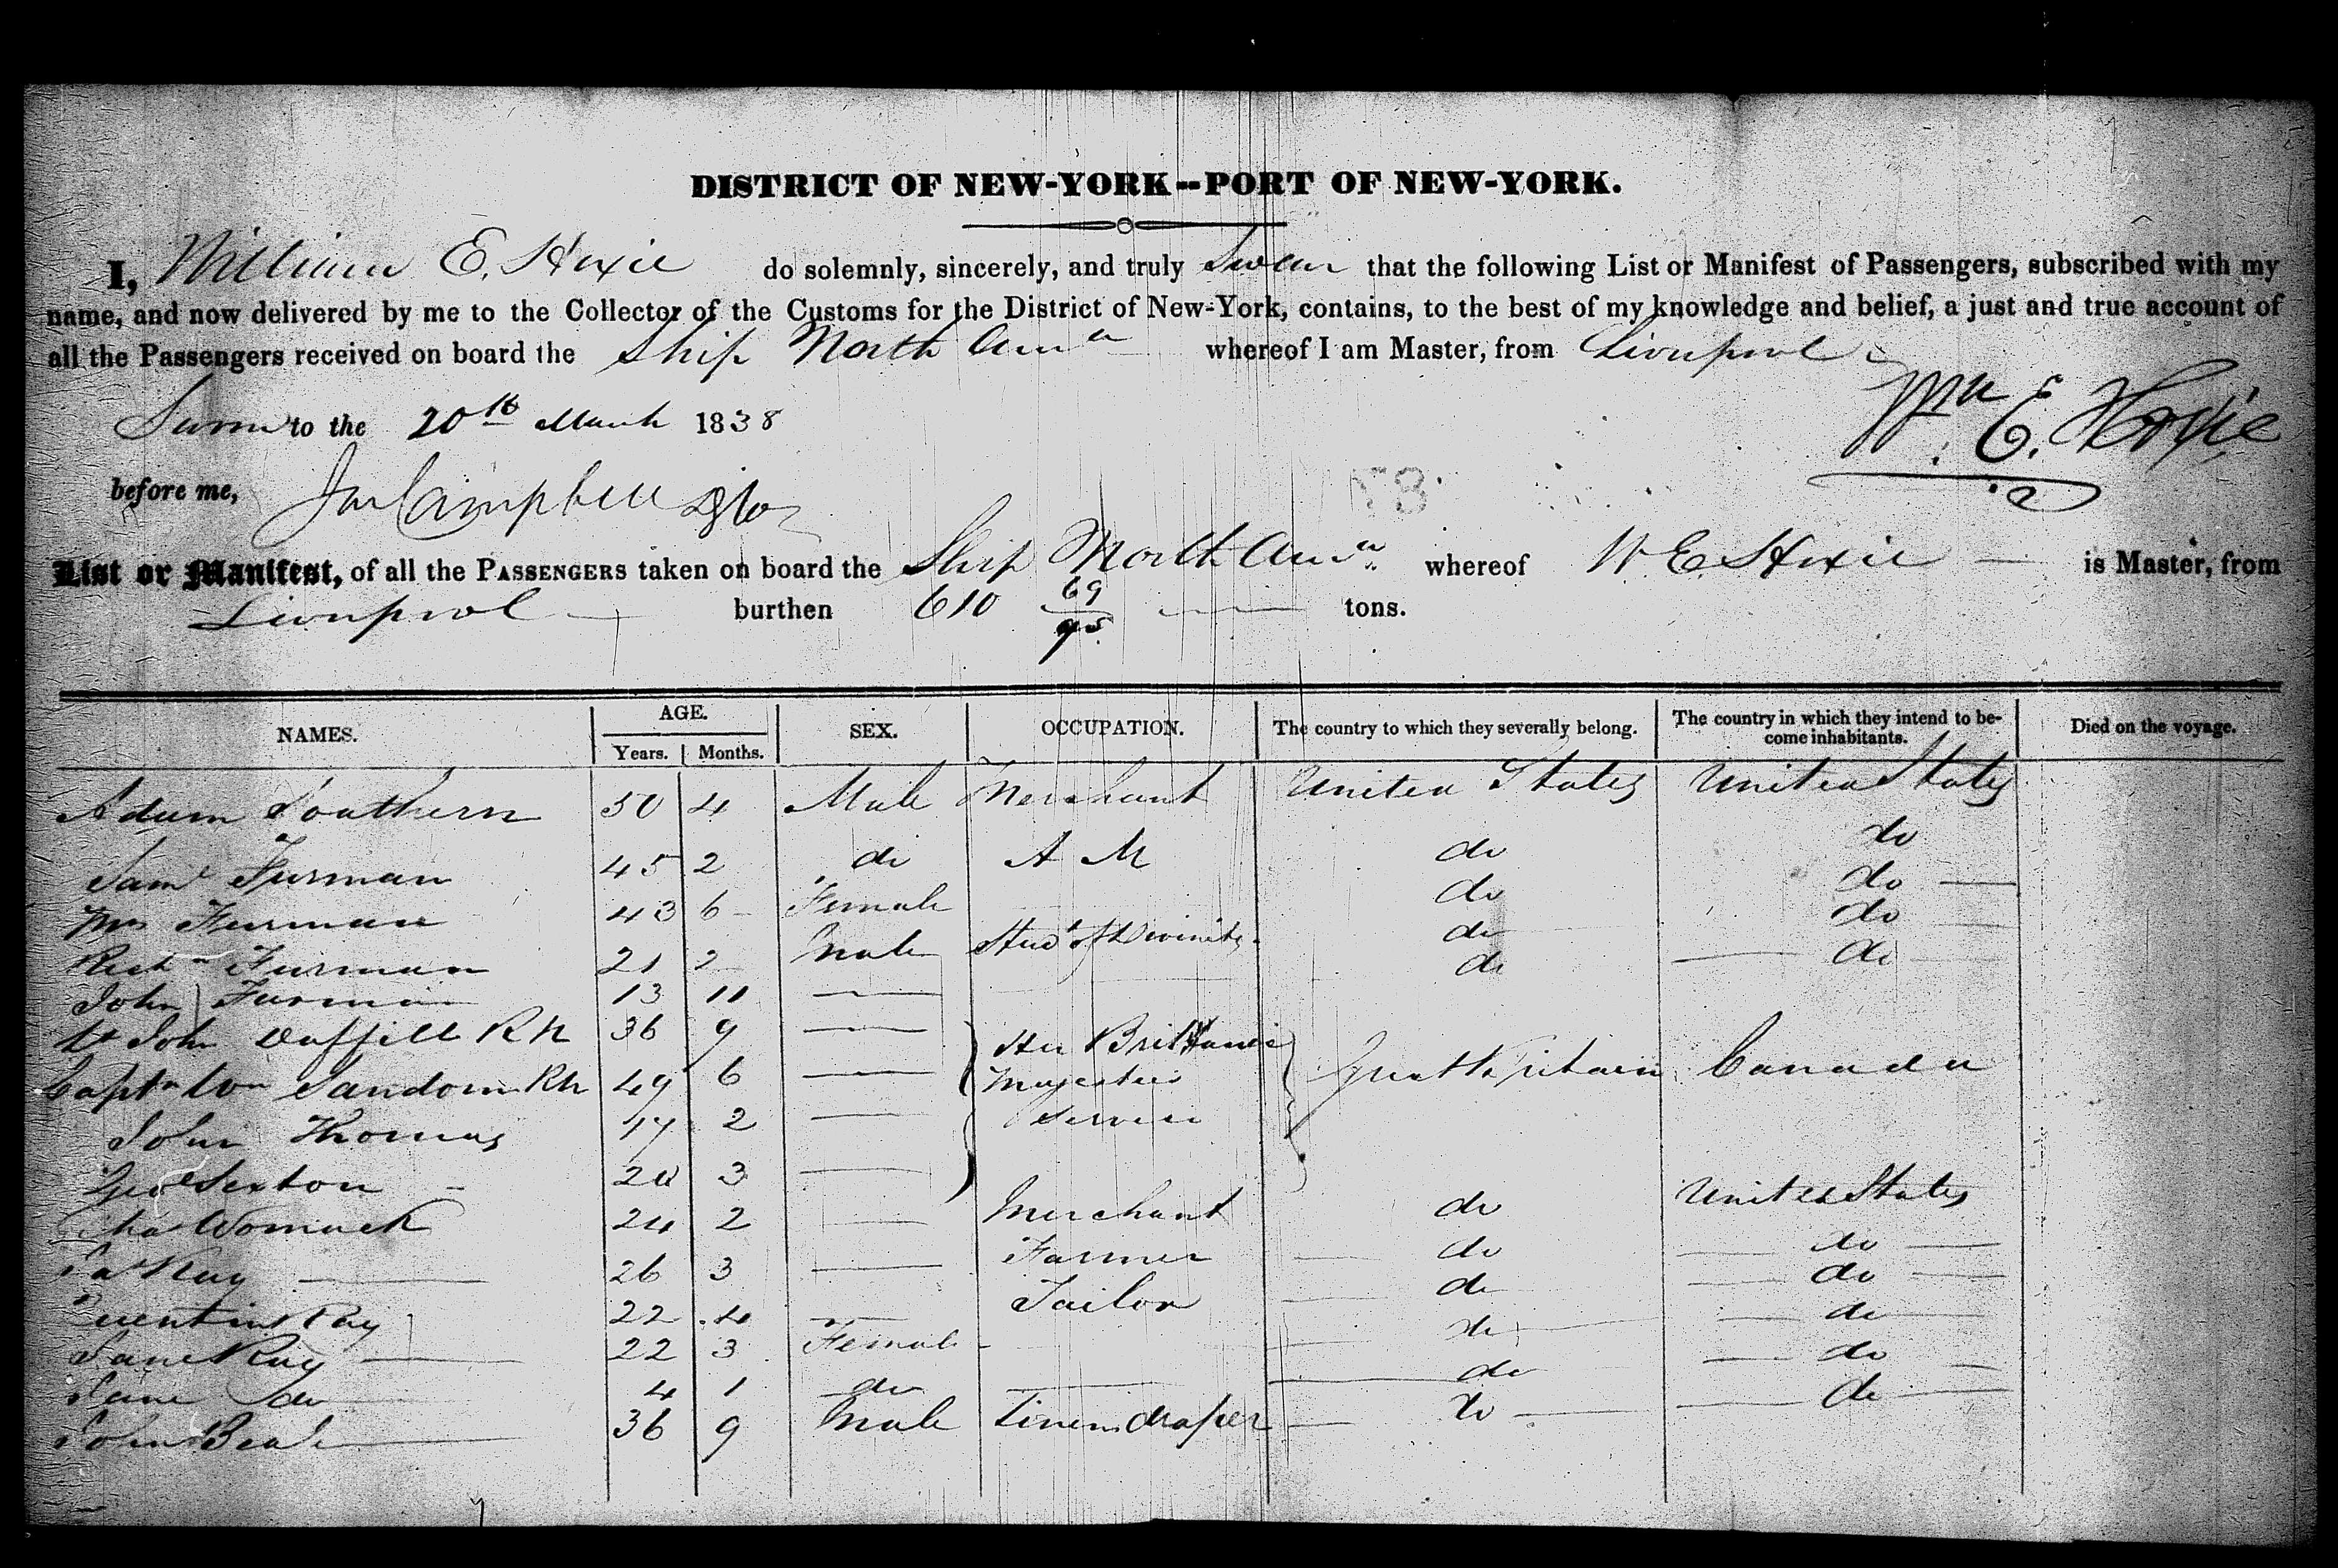 DISTRICT OF NEW-YORK--PORT OF NEW-YORK.
I, William E. Hoxie do solemnly, sincerely, and truly Swear that the following List or Manifest of Passengers, subscribed with my
name, and now delivered by me to the Collector of the Customs for the District of New-York, contains, to the best of my knowledge and belief, a just and true account of
all the Passengers received on board the Ship North Amca whereof I am Master, from Liverpool
Wm E. Hoxie
Sworn to the 20th March 1838
before me, Campbell
List or Manifest, of all the PASSENGERS taken on board the Ship North Amca whereof W E Hoxie is Master, from
Liverpool burthen 610 69/95 tons.
NAMES. AGE. SEX. OCCUPATION. The country to which they severally belong. The country in which they intend to be- Died on the voyage.
Years. Months. come inhabitants.
Adam Southern 50 4 Male Merchant United States United States
Saml Furman 45 2 do A M do do
Mrs Furman 43 6 Female do do
Richd Furman 21 2 Male Studt of Divinity do do
John Furman 13 11 do do
Lt John Duffill RN 36 9 Her Brittanic
Captn Wm Sandom RN 49 6 Majesties Great Britain Canada
John Thomas 17 2 Service
Geo Sexton 20 3
Chas Womack 24 2 Merchant do United States
Jas Kay 26 3 Farmer do do
Quentin Kay 22 4 Tailor do do
Jane Kay 22 3 Female do do
Jane do 4 1 do do do
John Beale 36 9 Male Linen draper do do